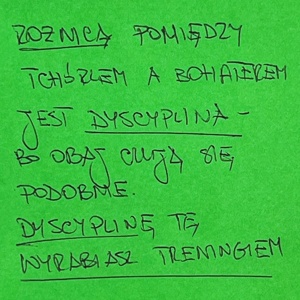 RÓŻNICĄ POMIĘDZY
TCHÓRZEM A BOHATEREM
JEST DYSCYPLINA –
BO OBAJ CZUJĄ SIĘ
PODOBNIE.
DYSCYPLINĘ TĘ
WYRABIASZ TRENINGIEM